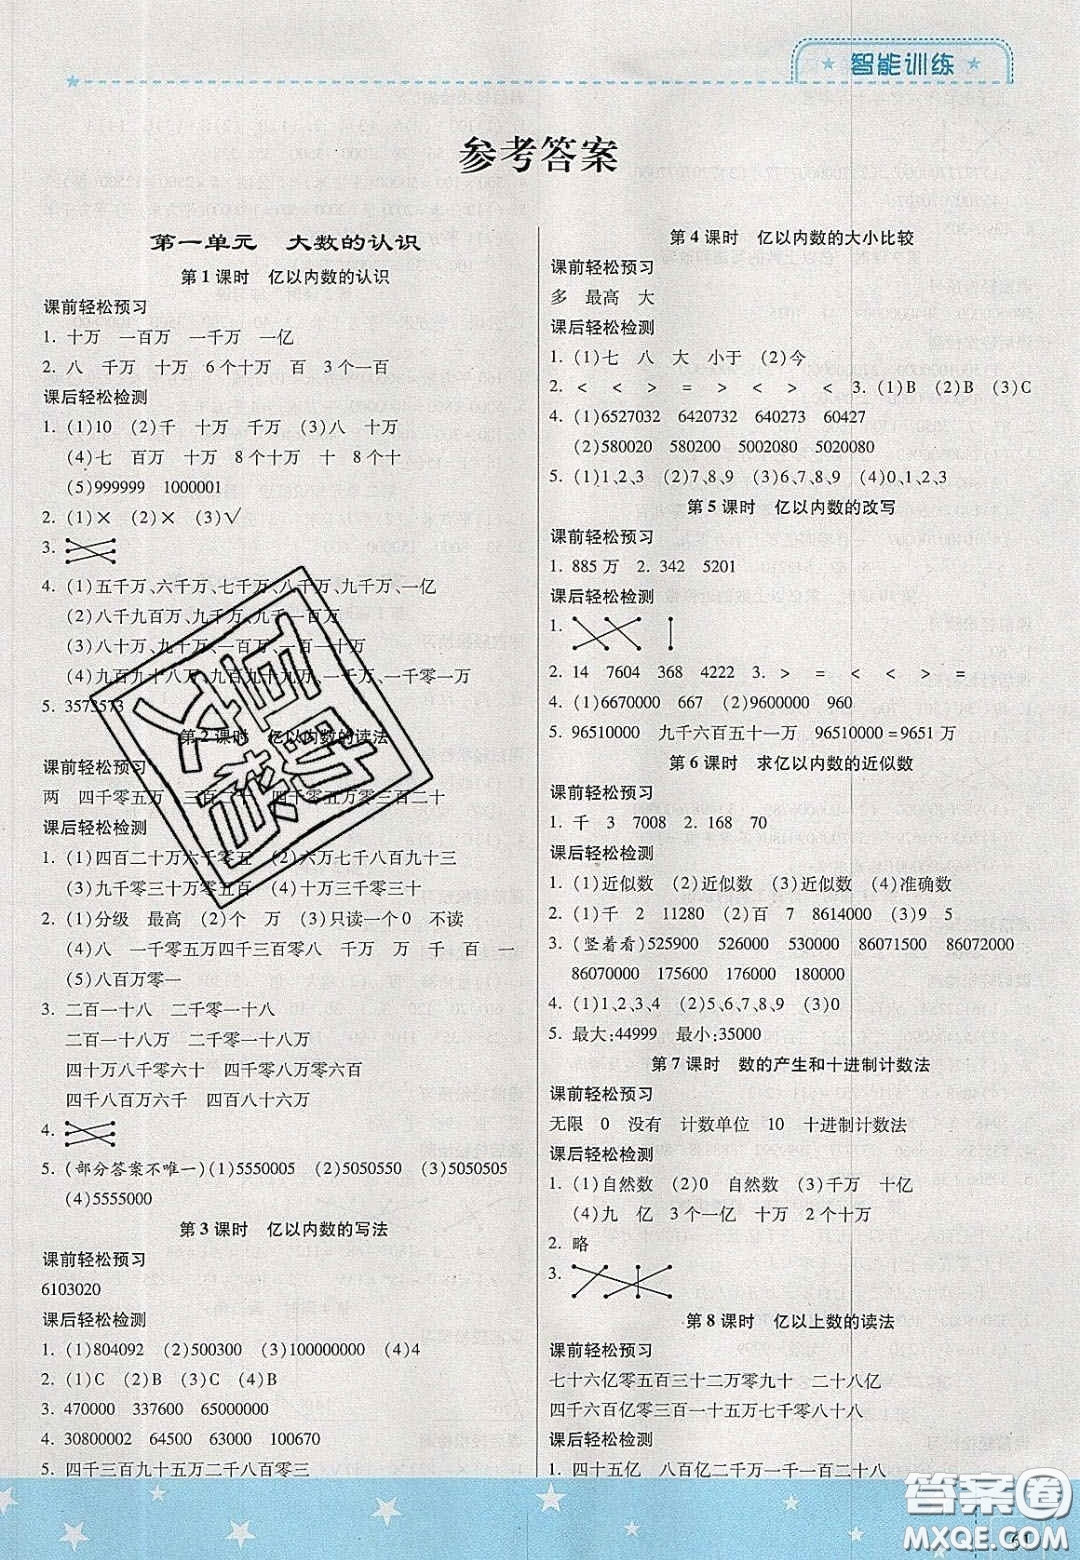 智能训练
参考答案
第一单元 大数的认识
第1课时 亿以内数的认识
课前轻松预习
1. 十万 一百万 一千万 一亿
2. 八 千万 十万 6个十万 百 3个一百
课后轻松检测
1. (1)10 (2)千 十万 千万 (3)八 十万
(4)七 百万 十万 8个十万 十 8个十
(5)999999 1000001
2. (1)× (2)× (3)√
3.
4. (1)五千万、六千万、七千万、八千万、九千万、一亿
(2)八千九百万、九千万、九千一百万
(3)八十万、九十万、一百万、一百一十万
(4)九百九十八万、九百九十九万、一千万、一千零一万
5. 3573573
第2课时 亿以内数的读法
课前轻松预习
两 四千零五万 三百二十 四千零五万零三百二十
课后轻松检测
1. (1)四百二十万六千零五 (2)六万七千八百九十三
(3)九千零三十万零五百 (4)十万三千零三十
2. (1)分级 最高 (2)个 万 (3)只读一个0 不读
(4)八 一千零五万四千三百零八 千万 万 千 百 一
(5)八百万零一
3. 二百一十八 二千零一十八
二百一十八万 二千零一十八万
四十万八千六百 四千零八万零六百
四千八百万六千 四百八十六万
4.
5. (部分答案不唯一)(1)5550005 (2)5050550 (3)5050505
(4)5555000
第3课时 亿以内数的写法
课前轻松预习
6103020
课后轻松检测
1. (1)804092 (2)500300 (3)100000000 (4)4
2. (1)C (2)B (3)C (4)B
3. 470000 337600 65000000
4. 30800002 64500 63000 100670
5. 四千三百九十五万二千八百零三
第4课时 亿以内数的大小比较
课前轻松预习
多 最高 大
课后轻松检测
1. (1)七 八 大 小于 (2)今
2. < < > = > < > < 3. (1)B (2)B (3)C
4. (1)6527032 6420973 640273 60427
(2)580020 580200 5002080 5020080
5. (1)1、2、3 (2)7、8、9 (3)6、7、8、9 (4)0、1、2、3
第5课时 亿以内数的改写
课前轻松预习
1. 885万 2. 342 5201
课后轻松检测
1.
2. 14 7604 368 4222 3. > = < > > =
4. (1)6670000 667 (2)9600000 960
5. 96510000 九千六百五十一万 96510000=9651万
第6课时 求亿以内数的近似数
课前轻松预习
1. 千 3 7008 2. 168 70
课后轻松检测
1. (1)近似数 (2)近似数 (3)近似数 (4)准确数
2. (1)千 2 11280 (2)百 7 8614000 (3)9 5
3. (竖着看)525900 526000 530000 86071500 86072000
86070000 175600 176000 180000
4. (1)1、2、3、4 (2)5、6、7、8、9 (3)0
5. 最大:44999 最小:35000
第7课时 数的产生和十进制计数法
课前轻松预习
无限 0 没有 计数单位 10 十进制计数法
课后轻松检测
1. (1)自然数 (2)0 自然数 (3)千万 十亿
(4)九 亿 3个一亿 十万 2个十万
2. 略
3.
第8课时 亿以上数的读法
课前轻松预习
七十六亿零五百三十二万零九十 二十八亿
四千六百亿零三百一十五万七千零八十八
课后轻松检测
1. 四十五亿 八百亿二千一百万 一千一百二十八
答案圈
MXQE.COM